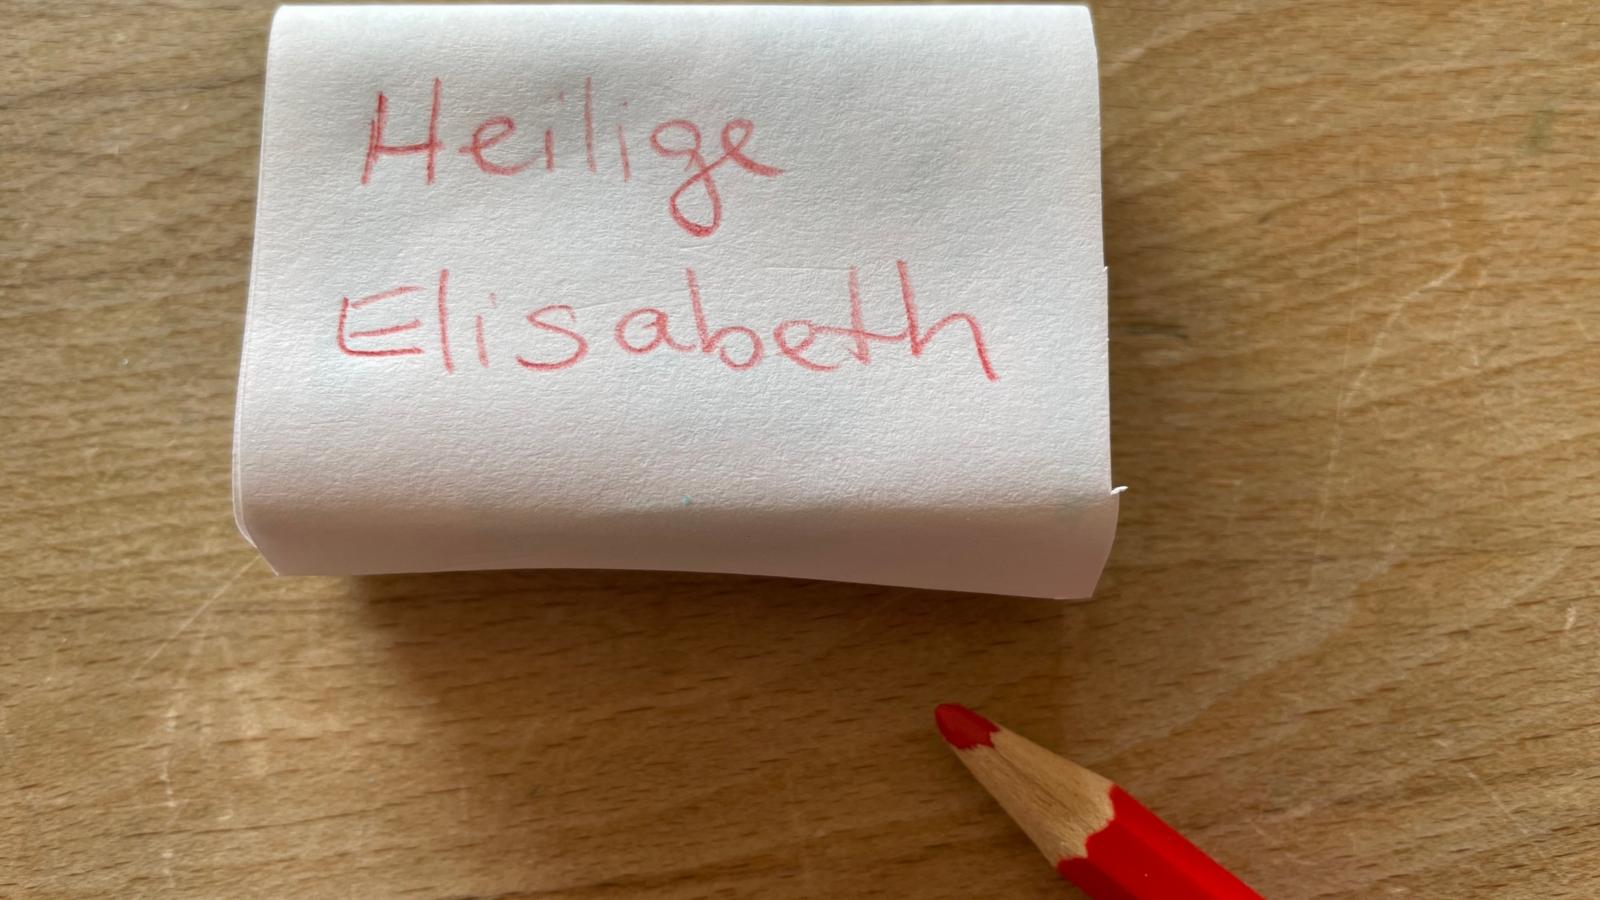 Heilige
Elisabeth